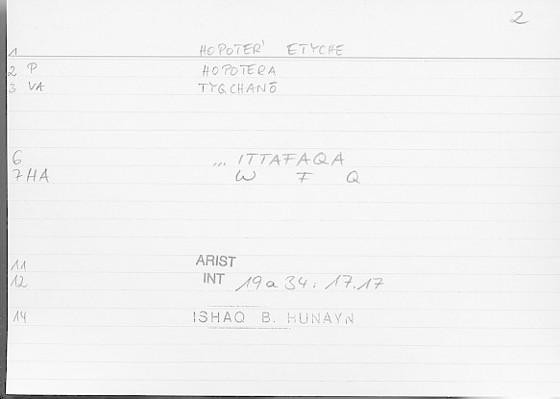 2
1 HOPOTER' ETYCHE
2 P HOPOTERA
3 VA TYGCHANŌ
6 ... ITTAFAQA
7 HA W F Q
11 ARIST
12 INT 19a34:17.17
14 ISHAQ B. HUNAYN